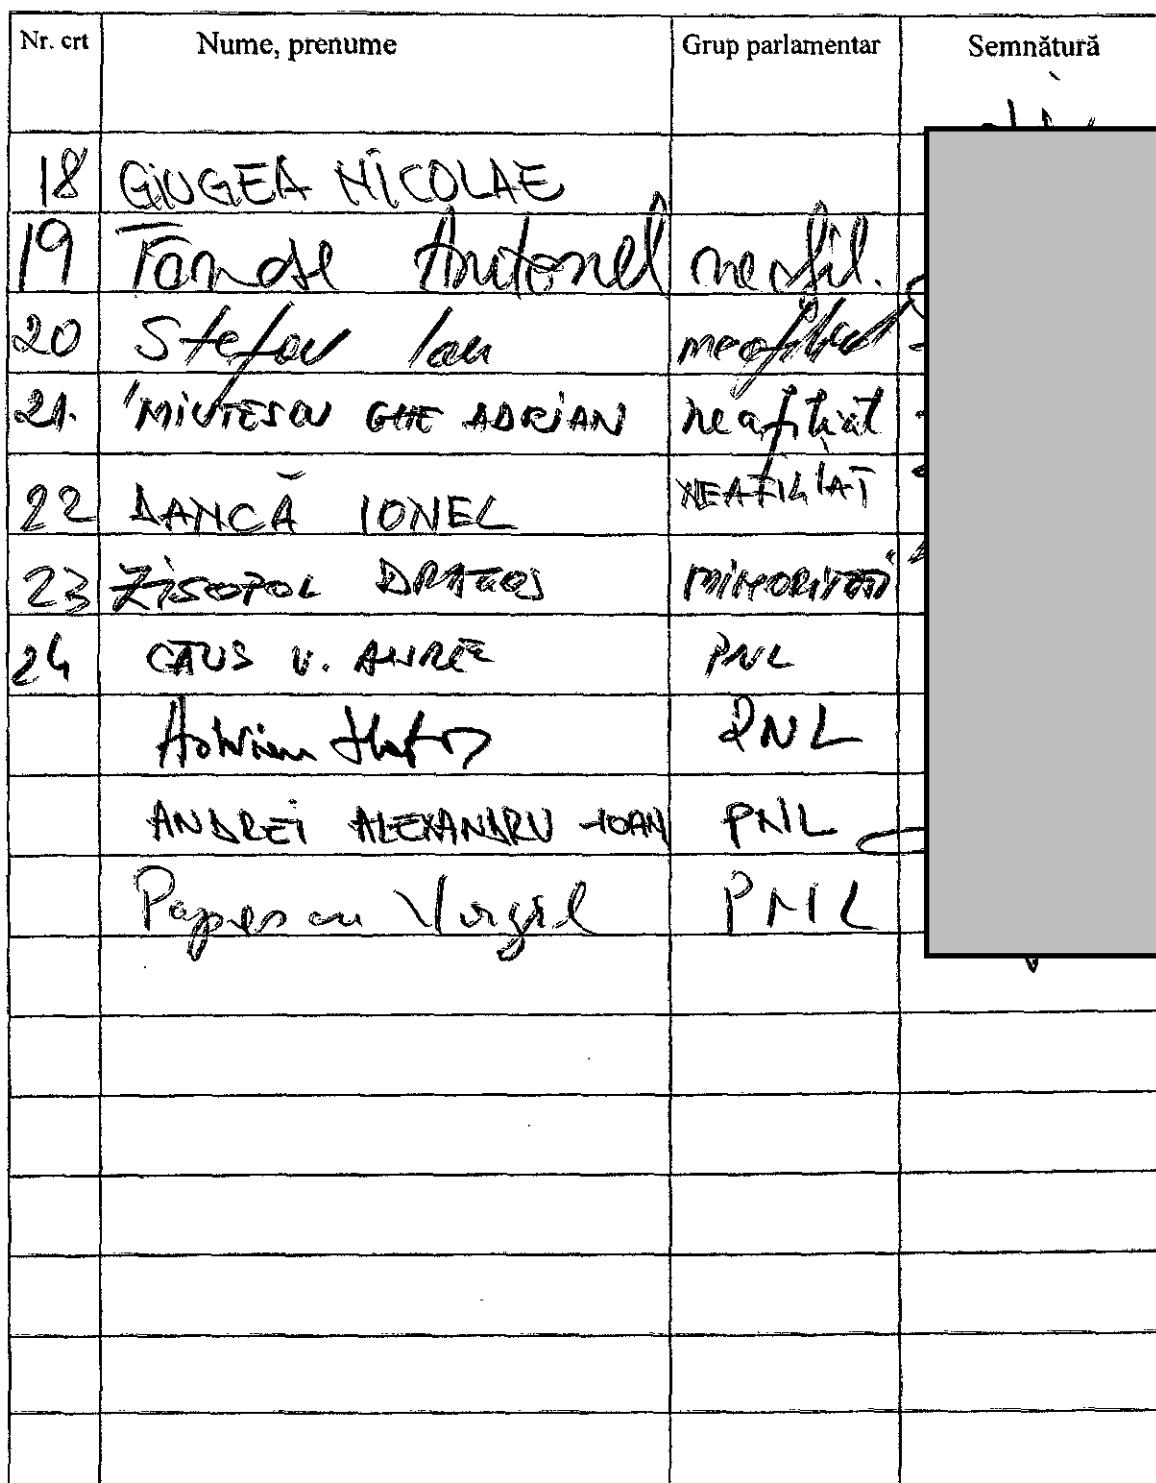 Nr. crt Nume, prenume Grup parlamentar Semnătură
18 GIUGEA NICOLAE
19 Tanase Antonel neafil.
20 Stefan Ion neafiliat
21. MIUTESCU GHE ADRIAN neafiliat
22 DANCĂ IONEL NEAFILIAT
23 ZISOPOL DRAGOS MINORITATI
24 CĂUS V. ANDREI PNL
PNL
ANDREI ALEXANDRU IOAN PNL
Popescu Virgil PNL